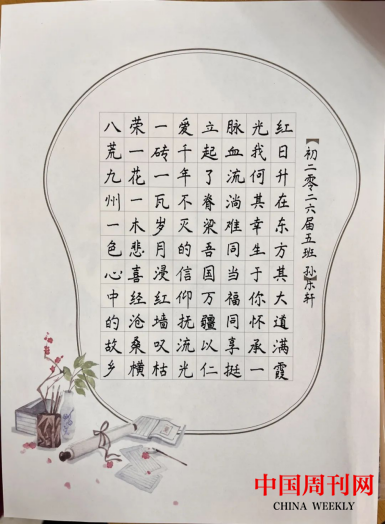 【初二零二六届五班 孙乐轩
红日升在东方其大道满霞
光我何其幸生于你怀承一
脉血流淌难同当福同享挺
立起了脊梁吾国万疆以仁
爱千年不灭的信仰抚流光
一砖一瓦岁月漫红墙叹枯
荣一花一木悲喜经沧桑横
八荒九州一色心中的故乡
中国周刊网
CHINA WEEKLY